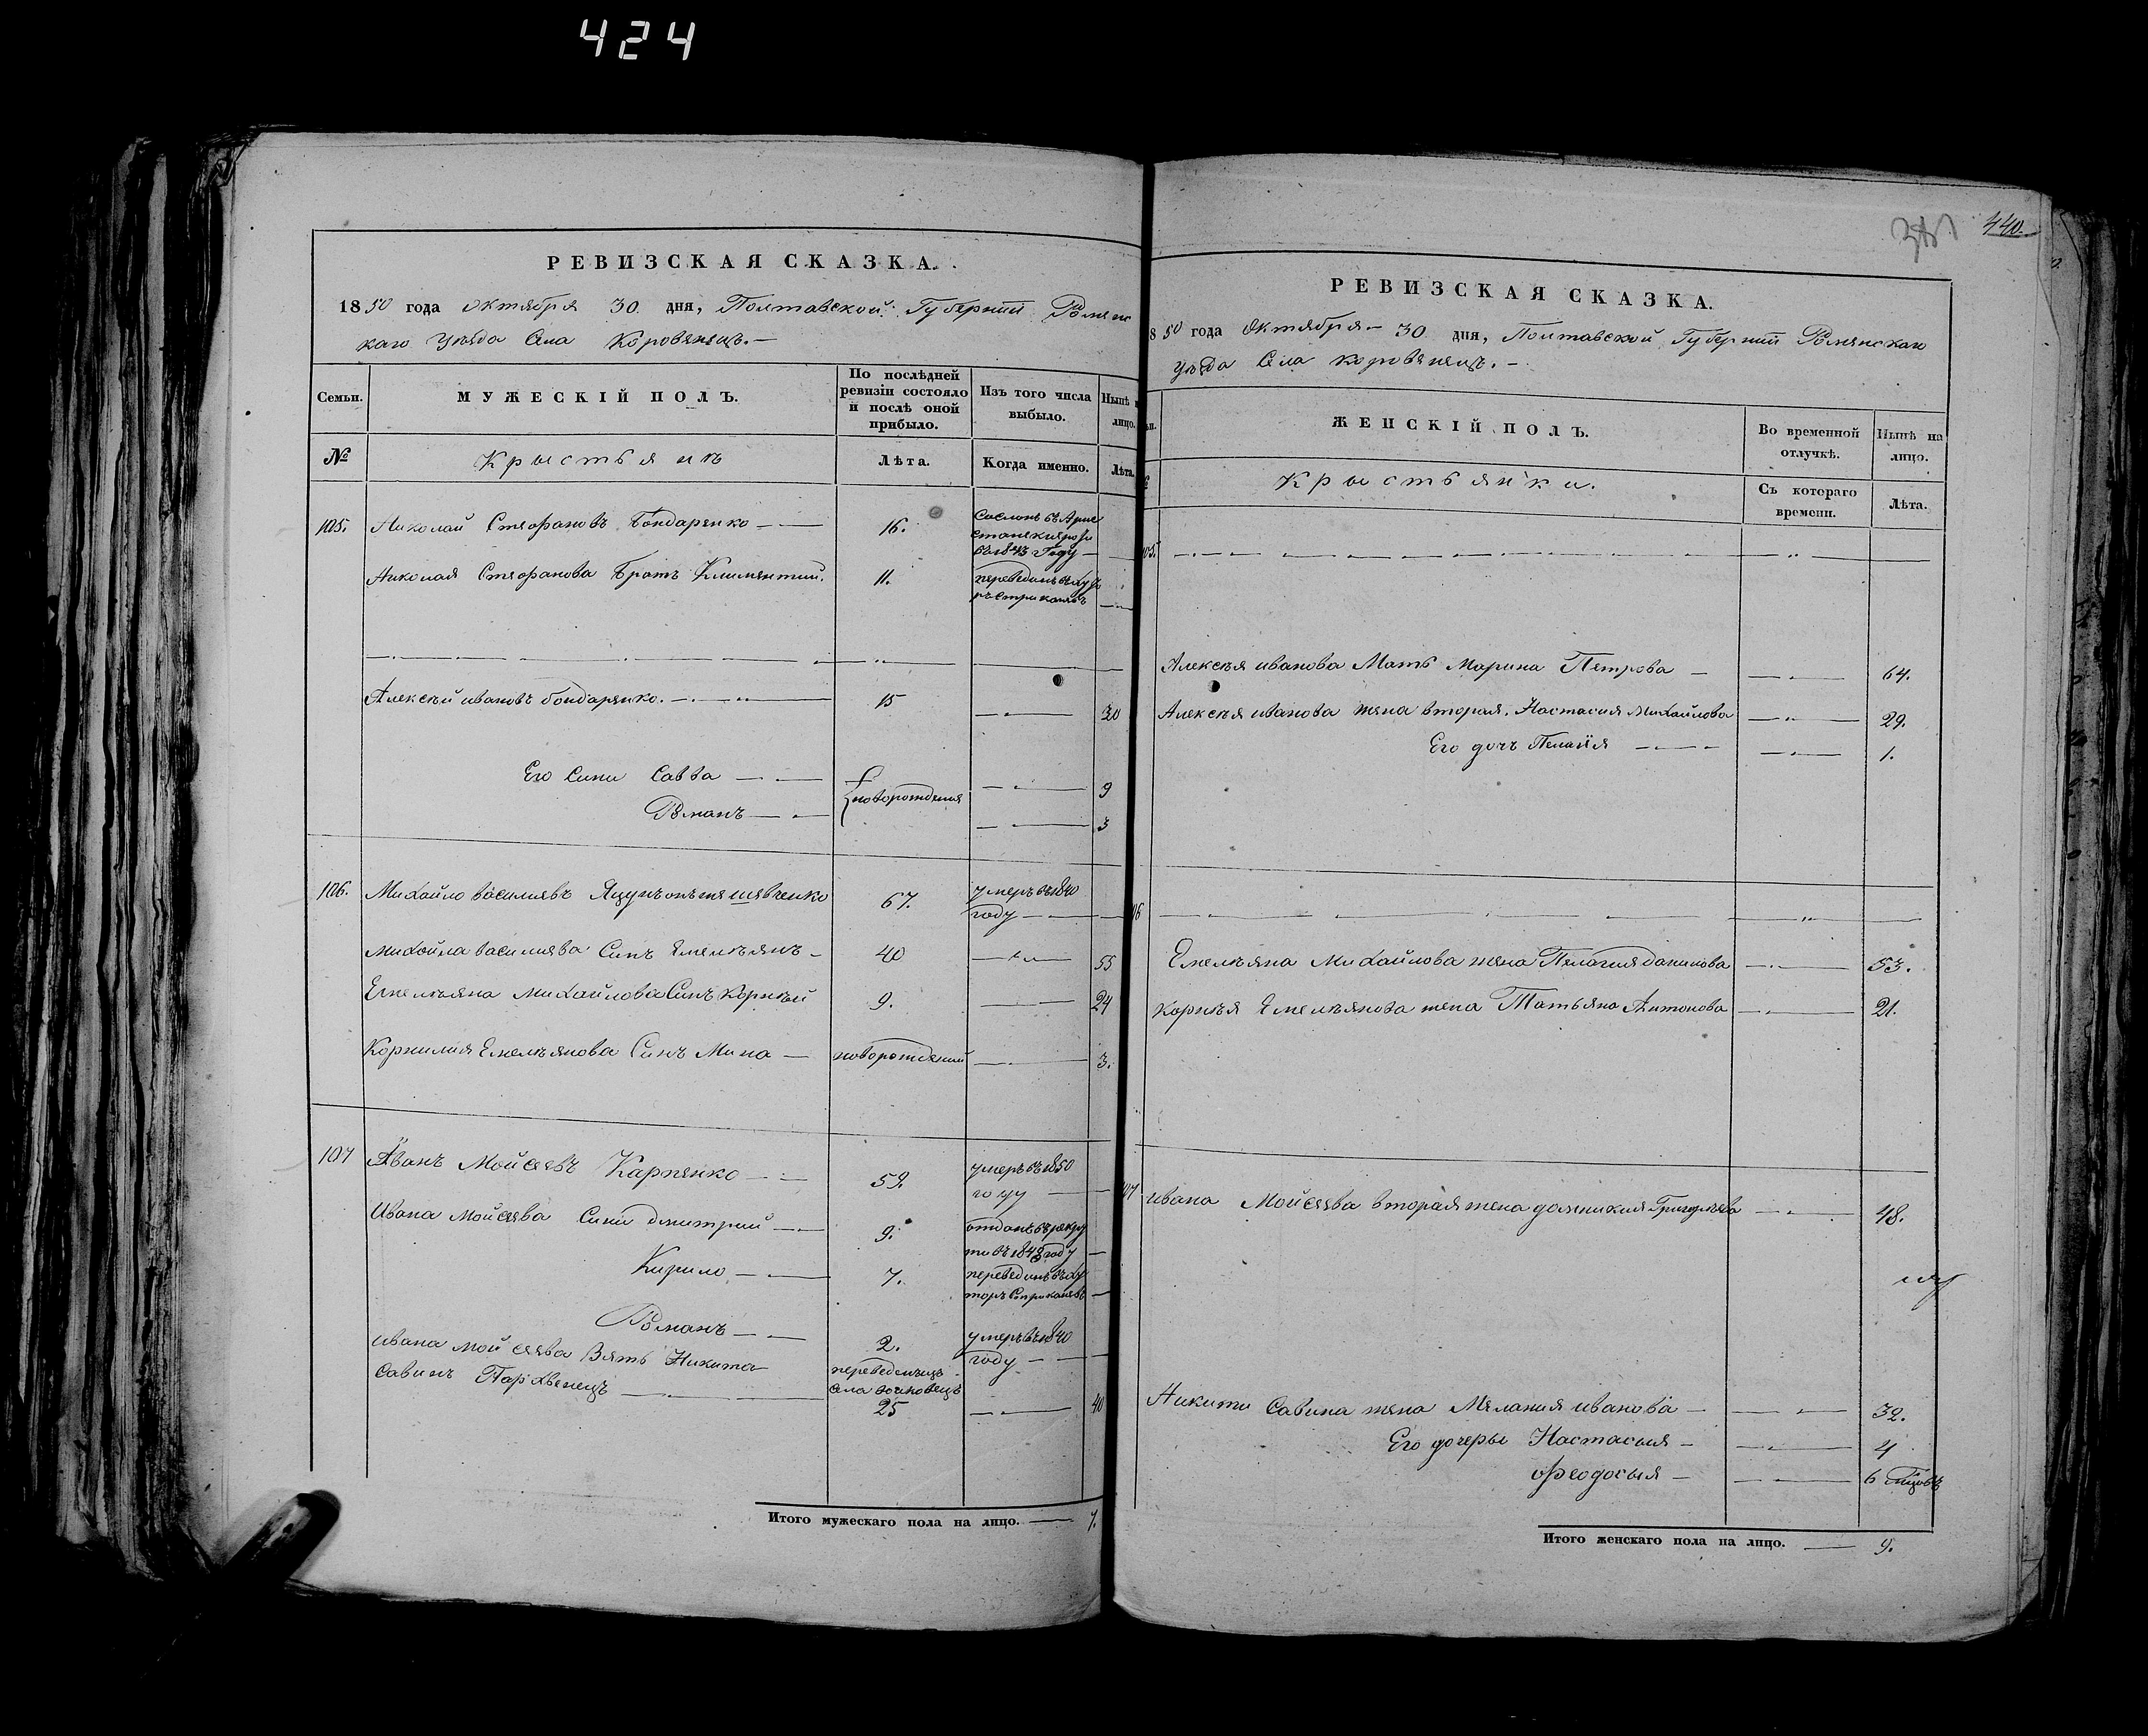 424
РЕВИЗСКАЯ СКАЗКА.
1850 года Октября 30 дня, Полтавской Губернии Роменс
каго уѣзда Села Коровянецъ.
Семьи.
МУЖЕСКІЙ ПОЛЪ.
По послѣдней ревизіи состояло и послѣ оной прибыло.
Изъ того числа выбыло.
Нынѣ н лицо.
№
Крыстьянъ
Лѣта.
Когда именно.
Лѣта.
105. Николай Стефановъ Бондаренко 16.
въ 1843 Году
Николая Стефанова Братъ Климентий. 11.
переведенъ
Алексѣй ивановъ бондаренко. 15 30
Его Сини Савва новорождения 9
Романъ 3
106. Михайло василиевъ шевченко 67. умеръ въ 1840
году
михайла василиева Синъ Емелъянъ 40 55
Емелъяна михайлова Синъ Корнѣй 9. 24
Корнилия Емелъянова Синъ Мина новорождений 3.
107 Иванъ Мойсеевъ Карпенко 59. умеръ въ 1850
году
Ивана Мойсеева Сини дмитрий 9. отданъ въ рекру
ти въ 1848 году
Кирило 7. переведенъ въ ху
торъ
Романъ 2. умеръ въ 1840
году
ивана мойсеева Зять Никита
Савинъ Пархвенецъ переведенецъ
села
25 40
Итого мужескаго пола на лицо. 7.
440.
РЕВИЗСКАЯ СКАЗКА.
850 года Октября 30 дня, Полтавской Губернии Роменскаго
уѣзда Села коровянецъ.
ЖЕНСКІЙ ПОЛЪ.
Во временной отлучкѣ.
Нынѣ на лицо.
Крыстьянки.
Съ котораго времени.
Лѣта.
105.
Алексѣя иванова Мать Марина Петрова 64.
Алексѣя иванова жена вторая. Настасия михайлова 29.
Его дочъ Пелагия 1.
106
Емелъяна Михайлова жена Пелагия данилова 53.
корнѣя Емелъянова жена Татьяна Антонова 21.
107 ивана Мойсеева вторая жена домникия Григорьева 48.
Никити Савина жена Мелания иванова 32.
Его дочеры Настасыя 4
Феодосыя 6 мцовъ
Итого женскаго пола на лицо. 9.